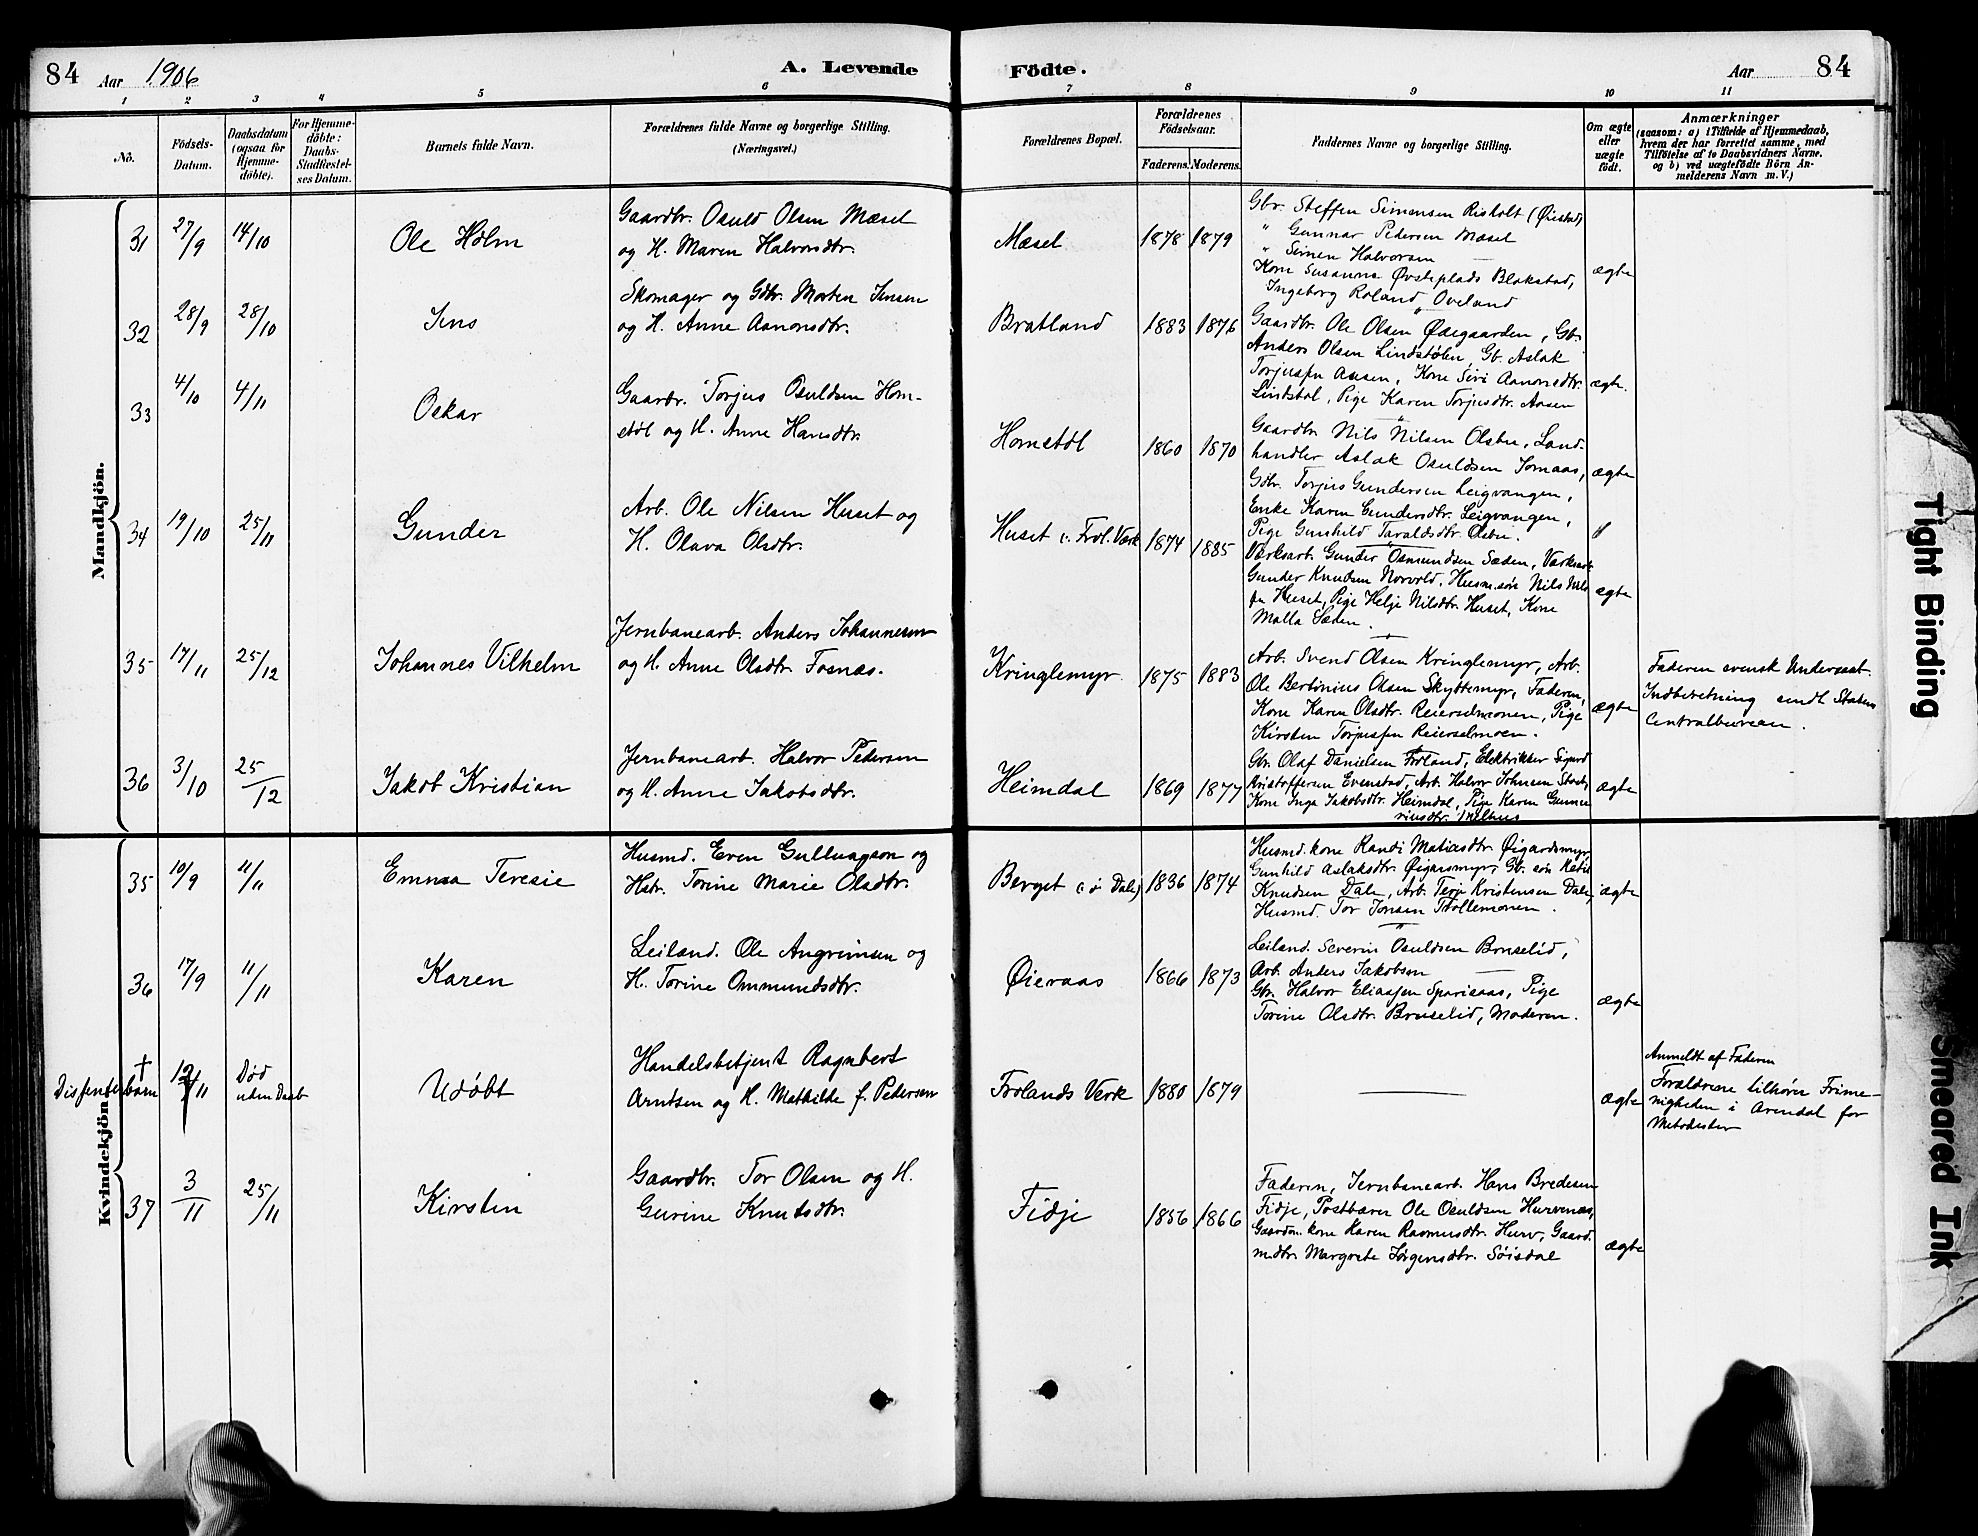 84 Aar 1906 A. Levende
Födte. Aar 84
1 2 3 4 5 6
7 8 9 10 11
No.
Födsels-
Datum.
Daabsdatum
(ogsaa for
Hjemme-
döbte).
For Hjemme-
döbte:
Daabs-
Stadfæstel-
ses Datum.
Barnets fulde Navn.
Forældrenes fulde Navne og borgerlige Stilling.
(Næringsvei.)
Forældrenes Bopæl.
Forældrenes
Födselsaar.
Faderens. Moderens.
Faddernes Navne og borgerlige Stilling.
Om ægte
eller
uægte
födt.
Anmærkninger
(saasom: a) i Tilfælde af Hjemmedaab,
hvem der har forrettet samme, med
Tilföielse af to Daabsvidners Navne,
og b) ved uægtefödte Börn An-
melderens Navn m. V.)
Mandkjön.
31 27/9 14/10 Ole Holm
Gaardbr. Osuld Olsen Mæsel
og H. Maren Halvorsdtr.
Mæsel 1878 1879
Gbr. Steffen Simonsen Risholt (Øiestad)
" Gunnar Pedersen Mæsel
" Simen Halvorsen —
Kone Susanne Øvsteplads Blakstad,
Ingeborg Roland Oveland
ægte
32 28/9 28/10 Jens
Skomager og Gdbr. Morten Jensen
og H. Anne Aanonsdtr.
Bratland 1883 1876
Gaardbr. Ole Olsen Ødegaarden, Gb.
Anders Olsen Lindstølen, Gb. Aslak
Torjusen Aasen, Kone Siri Aanonsdtr.
Lindstøl, Pige Karen Torjusdtr. Aasen
ægte.
33 4/10 4/11 Oskar
Gaardbr. Torjus Osuldsen Hom-
støl og H. Anne Hansdtr.
Homstøl 1860 1870
Gaardbr. Nils Nilsen Olsbu, Land-
handler Aslak Osuldsen Jomaas,
Gdbr. Torjus Gundersen Leigvangen,
Enke Karen Gundersdtr. Leigvangen,
Pige Gunhild Taraldsdtr. Olsbu.
ægte
34 19/10 25/11 Gunder
Arb. Ole Nilsen Huset og
H. Olava Olsdtr.
Huset v. Frol. Værk 1874 1885
Værksarb. Gunder Osmundsen Sæden, Værksarb.
Gunder Knudsen Norvold, Husm.søn Nils Nils
sen Huset, Pige Helje Nilsdtr. Huset, Kone
Malla Sæden.
ægte
35 17/11 25/12 Johannes Vilhelm
Jernbanearb. Anders Johannesen
og H. Anne Olsdtr. Fosnæs.
Kringlemyr. 1875 1883
Arb. Svend Olsen Kringlemyr, Arb.
Ole Bertinius Olsen Skyttemyr, Faderen,
Kone Karen Olsdtr. Reierselmonen, Pige
Kirsten Torjussen Reierselmoen.
ægte
Faderen svensk Undersaat.
Indberetning sendt Statens
Centralbureau.
36 3/10 25/12 Jakob Kristian
Jernbanearb. Halvor Pedersen
og H. Anne Jakobsdtr.
Heimdal 1869 1877
Gbr. Olaf Danielsen Froland, Elektriker Sigurd
Kristoffersen Evenstad, Arb. Halvor Johnsen
Kone Inga Jakobsdtr. Heimdal, Pige Karen Gunne
riusdtr. Melhus
ægte
Kvindekjön.
35 10/9 11/11 Emma Teresie
Husmd. Even Gulluagson og
Hstr. Torine Marie Olsdtr.
Berget (: ö Dale) 1836 1874
Husmd. kone Randi Matiasdtr. Øigardsmyr,
Gunhild Aslaksdtr. Øigarsmyr, Gb. søn Ketil
Knudsen Dale, Arb. Terje Kristensen Dale,
Husmd. Tor Jonsen Trollemonen.
ægte
36 17/9 11/11 Karen
Leiland. Ole Angrimsen og
H. Torine Ommundsdtr.
Øieraas 1866 1873
Leiland. Severin Osuldsen Bruselid,
Arb. Anders Jakobsen —
Gbr. Halvor Eliassen Sparsaas, Pige
Torine Olsdtr. Bruselid, Moderen.
ægte
†
Dissenterbarn 12/11
Död
uden Daab
Udøbt
Handelsbetjent Ragnbert
Arntsen og H. Mathilde f. Pedersen
Frolands Verk 1880 1879
—
ægte
Anmeldt af Faderen
Forældrene tilhører Frime-
nigheden i Arendal for
Metodister
37 3/11 25/11 Kirsten
Gaardbr. Tor Olsen og H.
Gurine Knutsdtr.
Fidje 1856 1866
Faderen, Jernbanearb. Hans Bredesen
Fidje, Postbærer Ole Osuldsen Hurvenæs,
Gaardm. kone Karen Rasmusdtr. Hurv, Gaard.
m.dtr. Margrete Jörgensdtr. Söisdal
ægte
Tight Binding
Smeared Ink